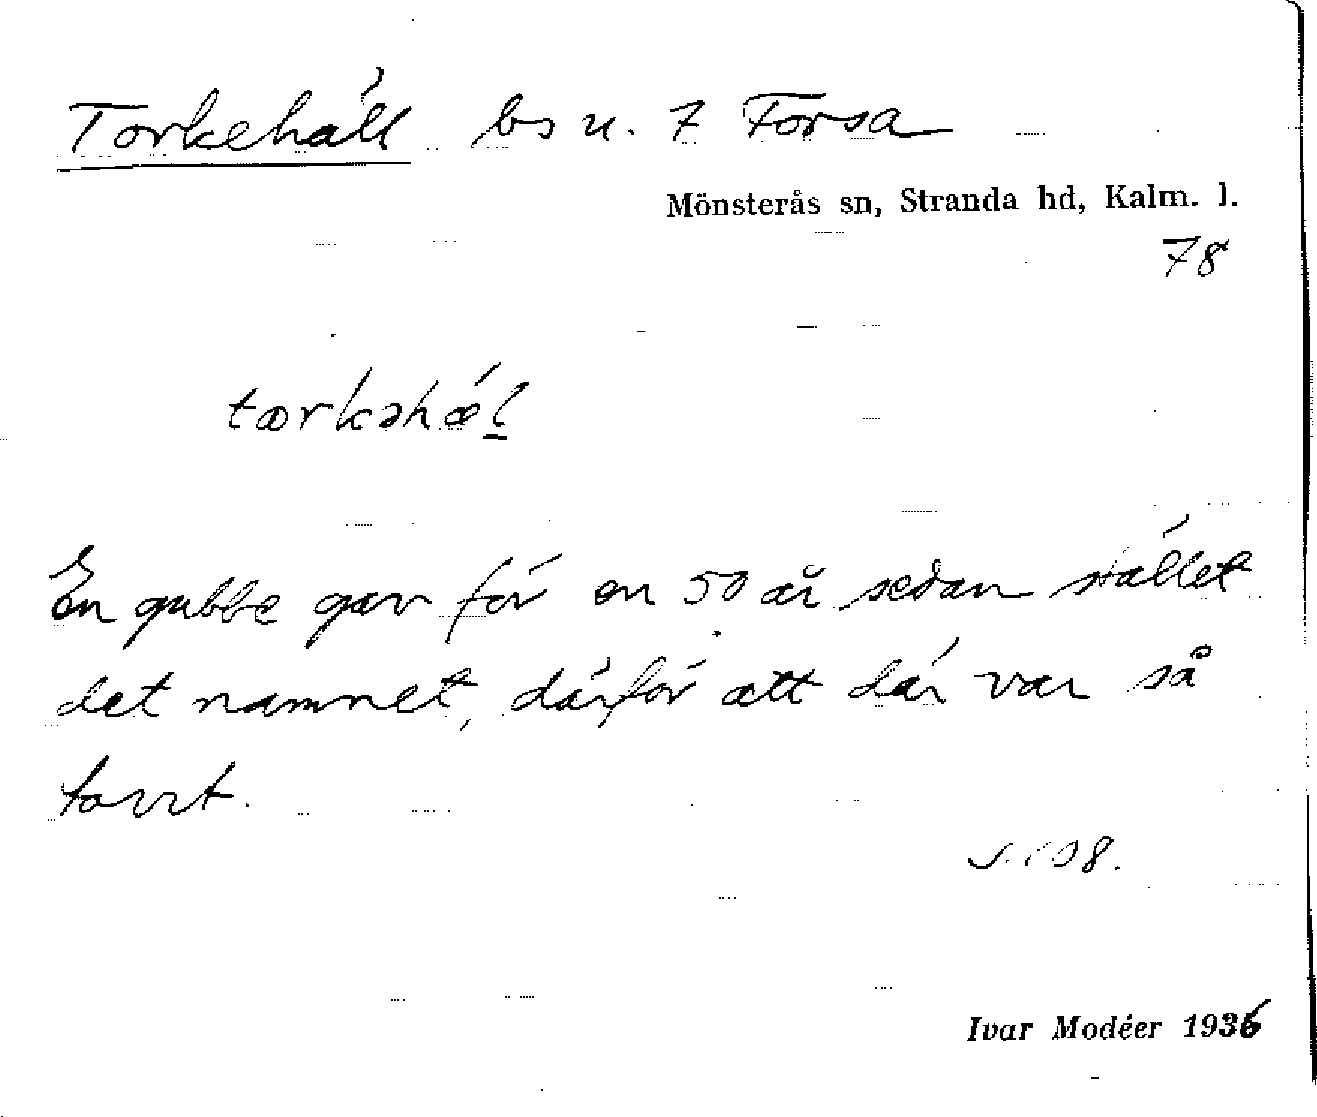 Torkehäll bs u. 7 Forsa
Mönsterås sn, Stranda hd, Kalm. l.
78
tærkəhǽl
En gubbe gav för en 50 år sedan stället
det namnet, därför att där var så
torrt.
Ivar Modéer 1936